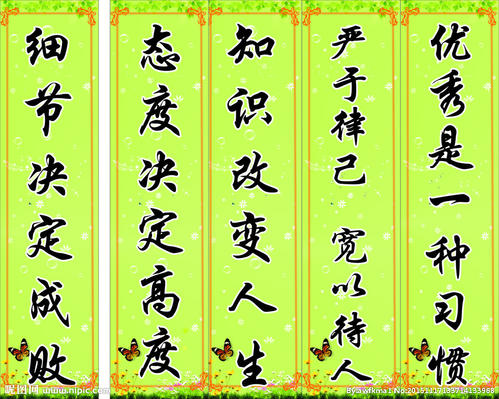 细节决定成败
态度决定高度
知识改变人生
严于律己 宽以待人
优秀是一种习惯
昵图网 www.nipic.com
By:awfkma1 No:20151117133714133988